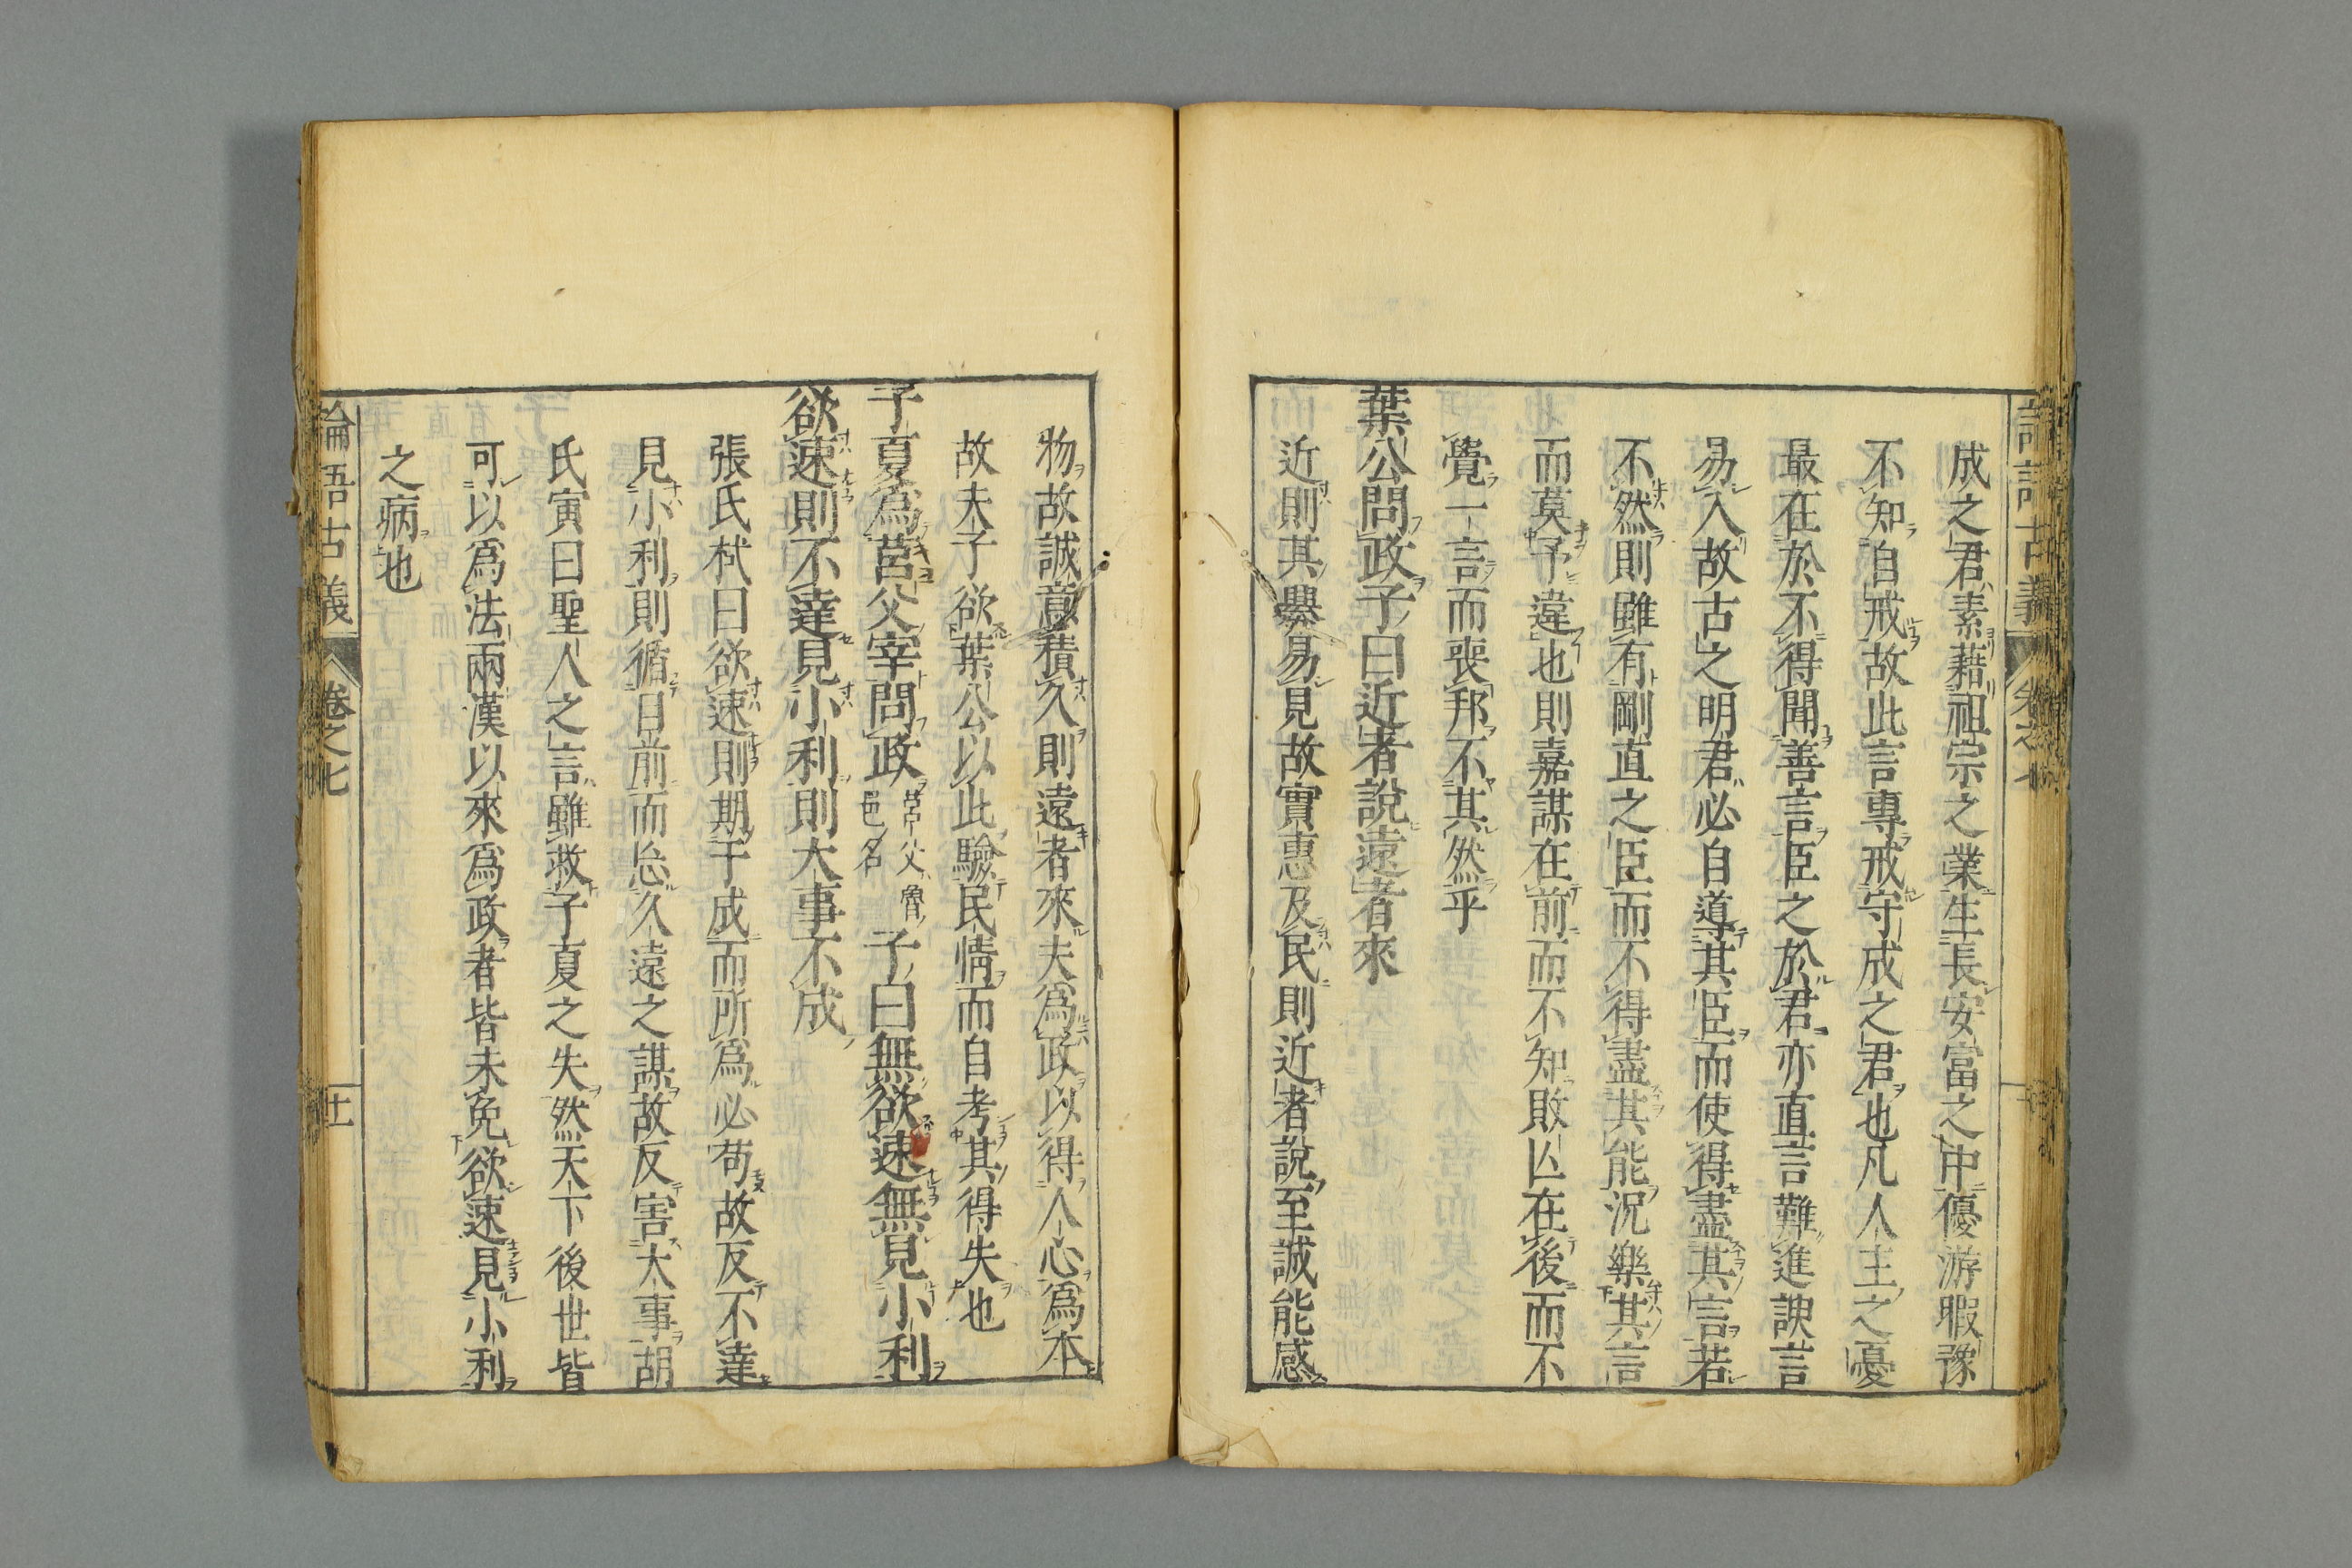 成之君素藉祖宗之業生長安富之中優游暇豫
不知自戒故此言專戒守成之君也凡人主之憂
最在於不得聞善言臣之於君亦直言難進諛言
易入故古之明君必自導其臣而使得盡其言若
不然則雖有剛直之臣而不得盡其能況樂其言
而莫予違也則嘉謀在前而不知敗亾在後而不
覺一言而喪邦不其然乎
葉公問政子曰近者說遠者來
近則其擧易見故實惠及民則近者說至誠能感
物故誠意積久則遠者來夫爲政以得人心爲本
故夫子欲葉公以此驗民情而自考其得失也
子夏爲莒父宰問政莒父魯邑名子曰無欲速無見小利
欲速則不達見小利則大事不成
張氏栻曰欲速則期于成而所爲必苟故反不達
見小利則循目前而忘久遠之謀故反害大事胡
氏寅曰聖人之言雖救子夏之失然天下後世皆
可以爲法兩漢以來爲政者皆未免欲速見小利
之病也
論語古義 卷之七 十一